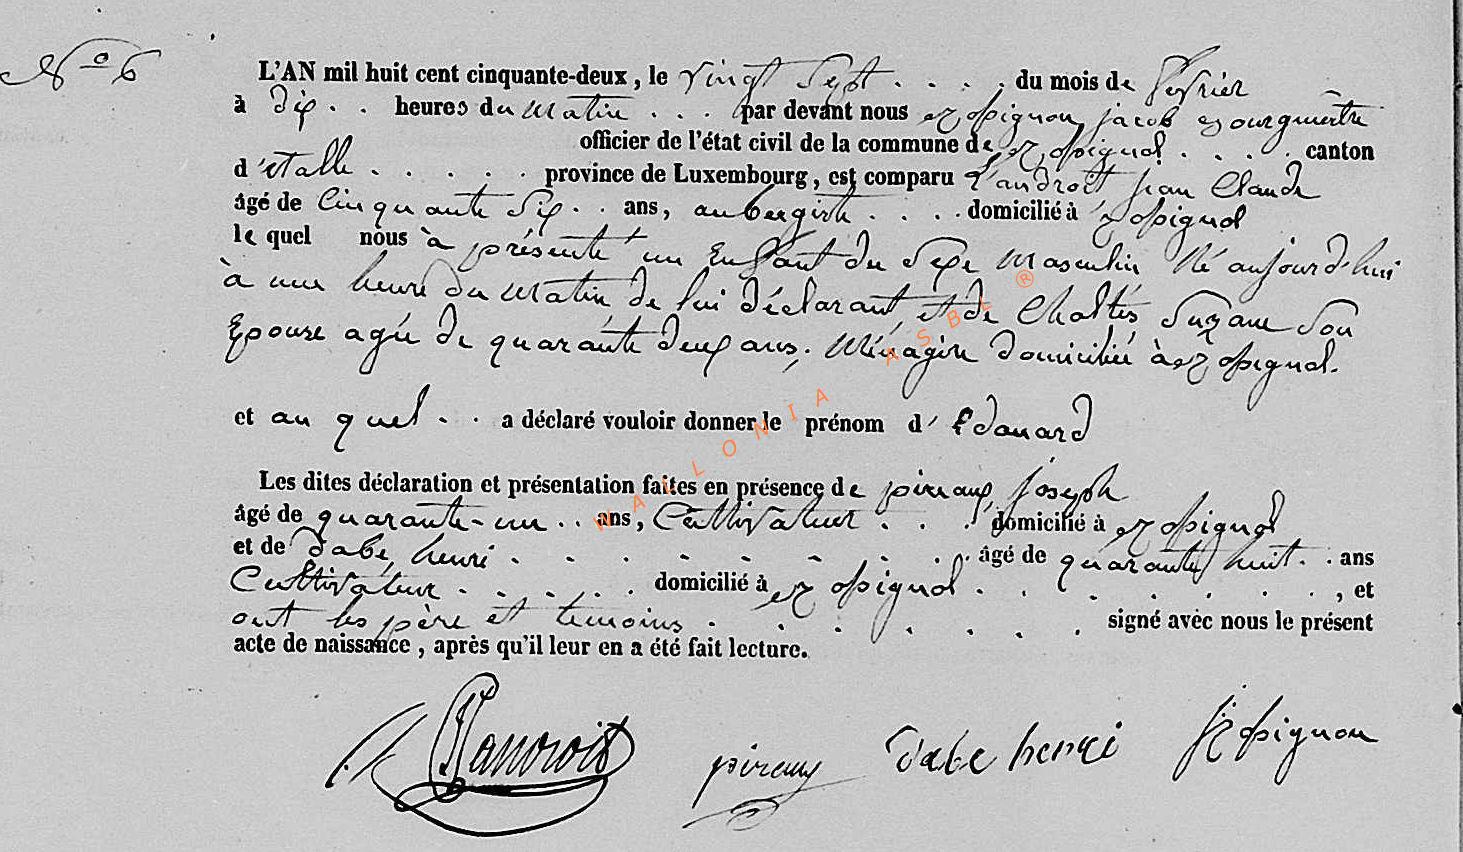 N° 6
L'AN mil huit cent cinquante-deux, le vingt sept . . . . du mois de fevrier
à dix . . heures du matin . . . par devant nous jacob Bourgmestre
officier de l'état civil de la commune de . . . . canton
d'etalle . . . . . province de Luxembourg, est comparu Landroit jean Claude
âgé de Cinquante six . . ans, aubergiste . . . . domicilié à
le quel nous à présenté un Enfant du sexe masculin Né aujourd'hui
à une heure du matin de lui déclarant, et de Suzane son
Epouse agée de quarante deux ans, Ménagère domiciliée à
et au quel . . a déclaré vouloir donner le prénom d' Edouard
Les dites déclaration et présentation faites en présence de pieraux joseph
âgé de quarante-un . . ans, Cultivateur . . . domicilié à
et de dabe, henri . . . . . . . . âgé de quarante huit . . ans
Cultivateur . . . . . . domicilié à . . . . . . . , et
ont les père et temoins . . . . . . . signé avec nous le présent
acte de naissance, après qu'il leur en a été fait lecture.
Landroit dabe henri
WALLONIA ASBL ®